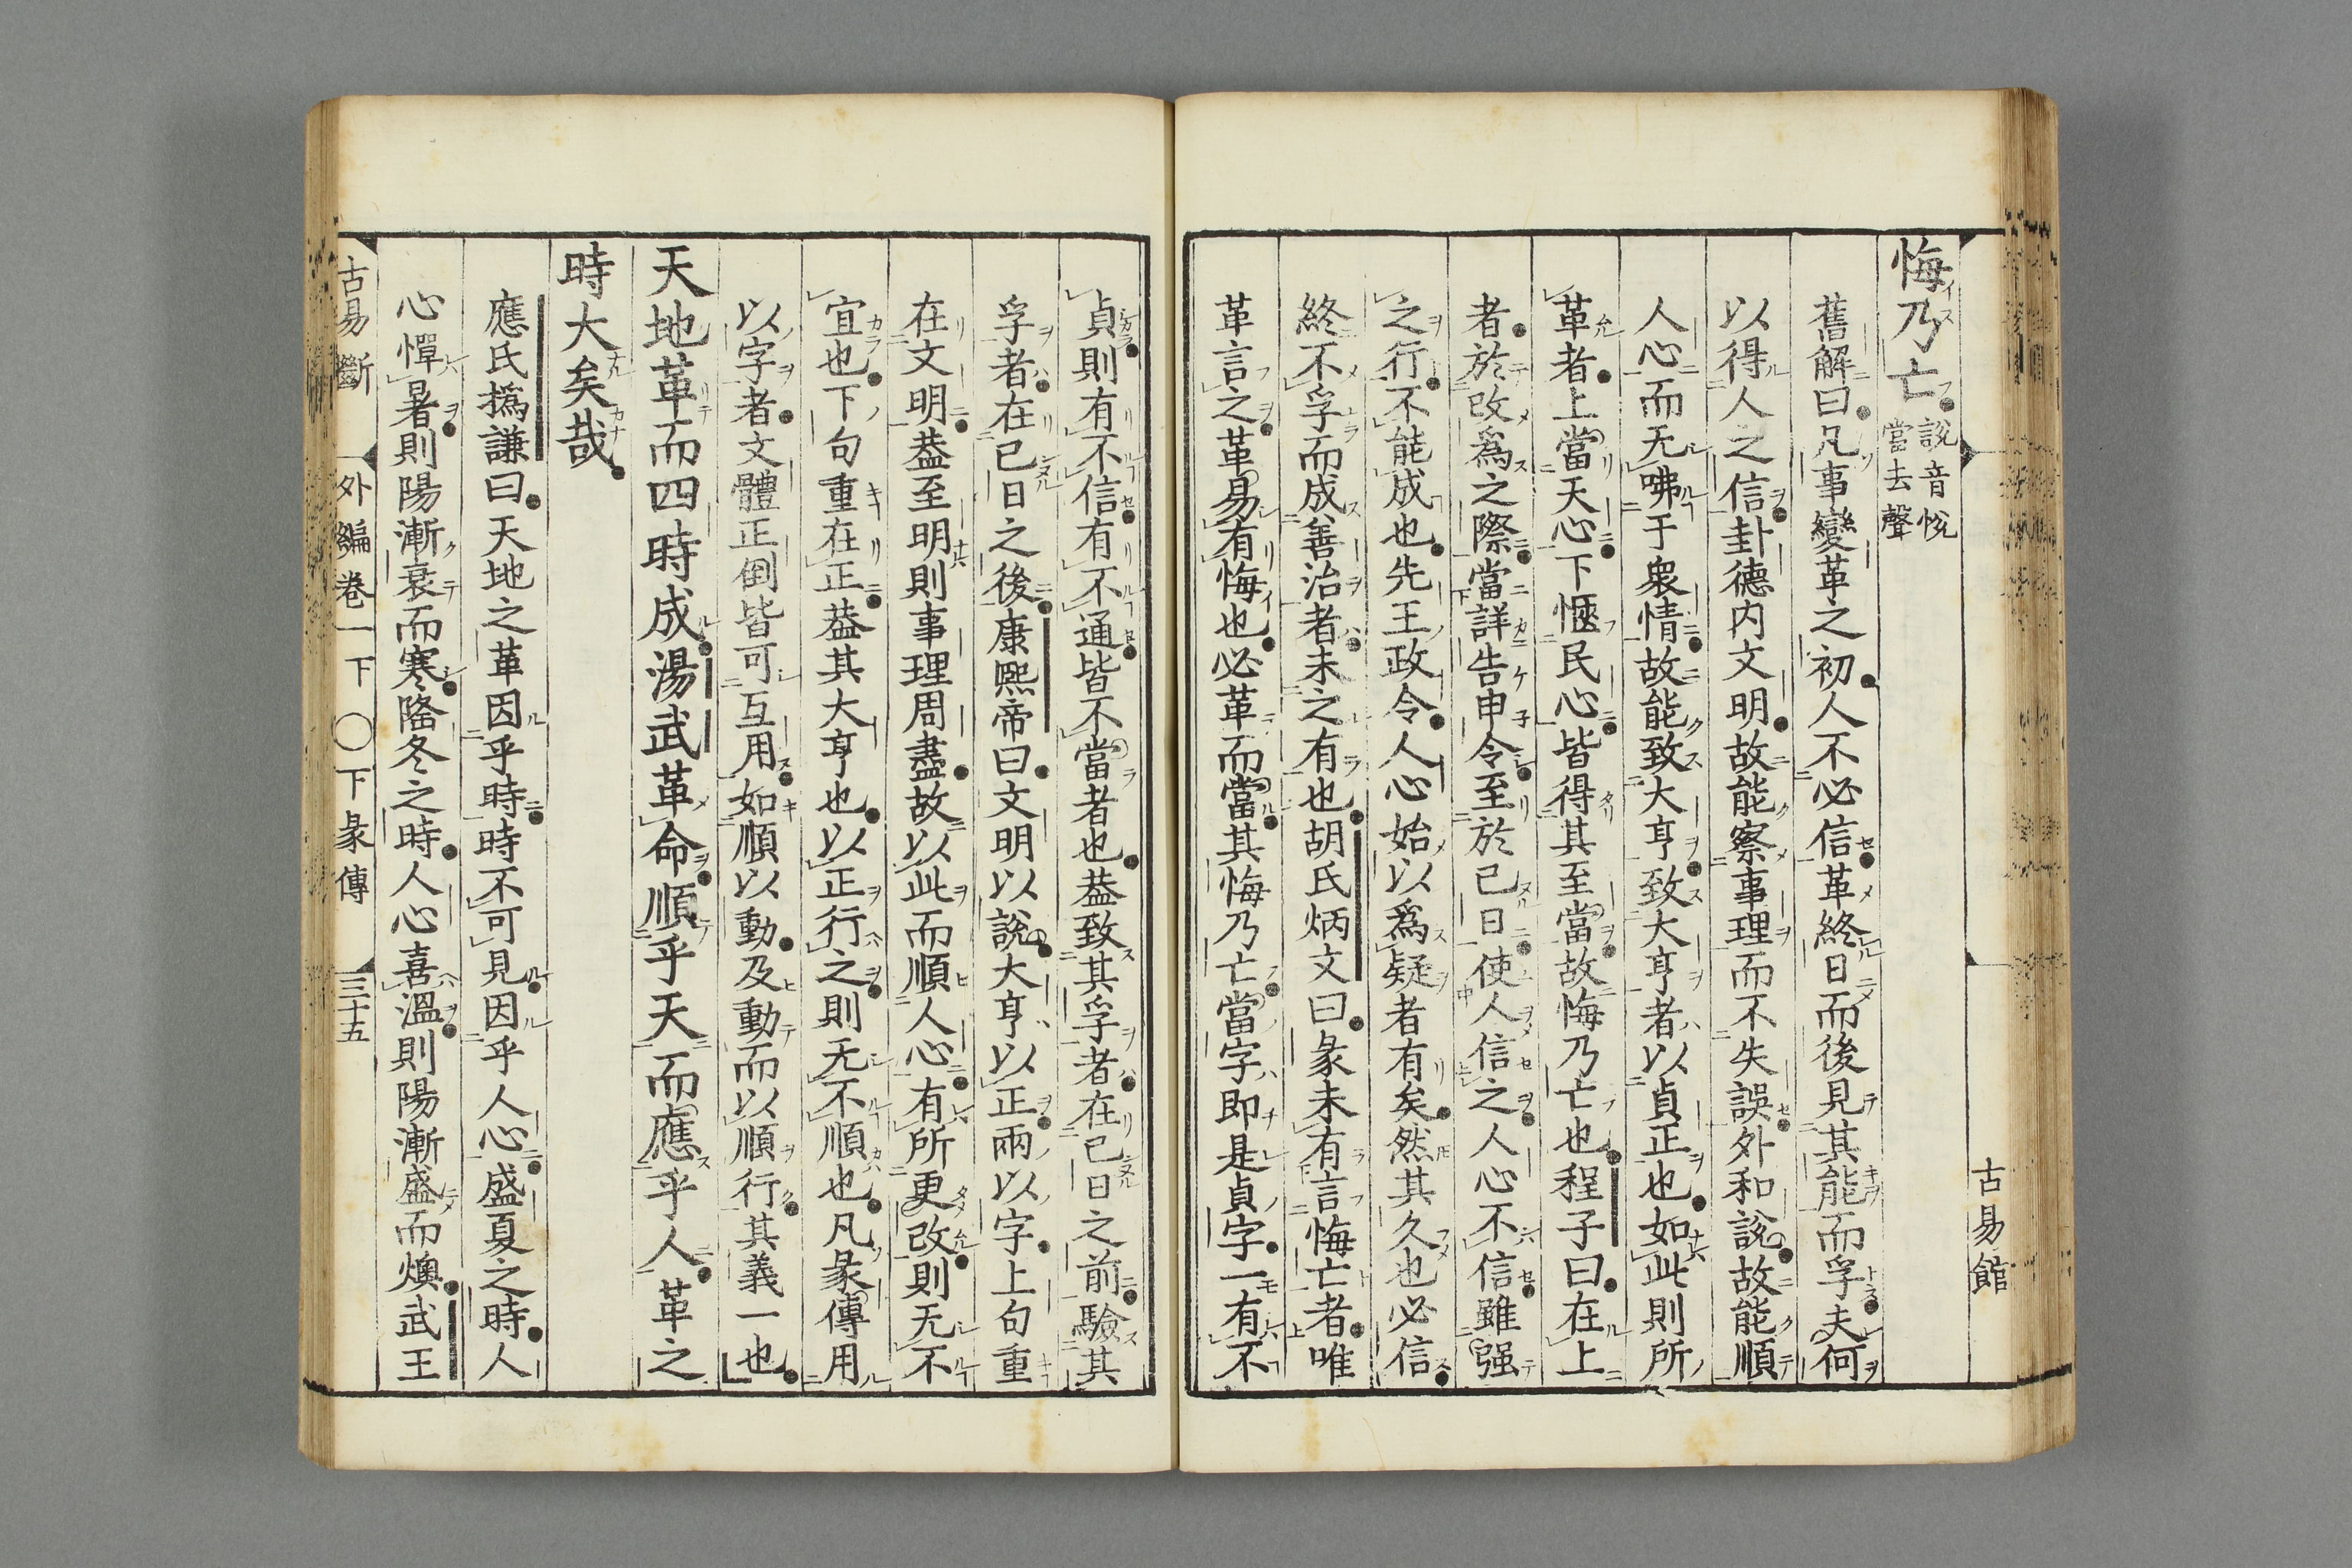 悔乃亡 說音悅當去聲
舊解曰凡事變革之初人不必信革終日而後見其能而孚夫何
以得人之信卦德内文明故能察事理而不失誤外和說故能順
人心而无咈于衆情故能致大亨致大亨者以貞正也如此則所
革者上當天心下愜民心皆得其至當故悔乃亡也程子曰在上
者於改爲之際當詳告申令至於已日使人信之人心不信雖强
之行不能成也先王政令人心始以爲疑者有矣然其久也必信
終不孚而成善治者未之有也胡氏炳文曰彖未有言悔亡者唯
革言之革易有悔也必革而當其悔乃亡當字即是貞字一有不
貞則有不信有不通皆不當者也葢致其孚者在已日之前驗其
孚者在已日之後康熙帝曰文明以說大亨以正兩以字上句重
在文明葢至明則事理周盡故以此而順人心有所更改則无不
宜也下句重在正葢其大亨也以正行之則无不順也凡彖傳用
以字者文體正倒皆可互用如順以動及動而以順行其義一也
天地革而四時成湯武革命順乎天而應乎人革之
時大矣哉
應氏撝謙曰天地之革因乎時時不可見因乎人心盛夏之時人
心憚暑則陽漸衰而寒隆冬之時人心喜溫則陽漸盛而燠武王
古易斷 外編卷一下 〇下彖傳 三十五
古易館